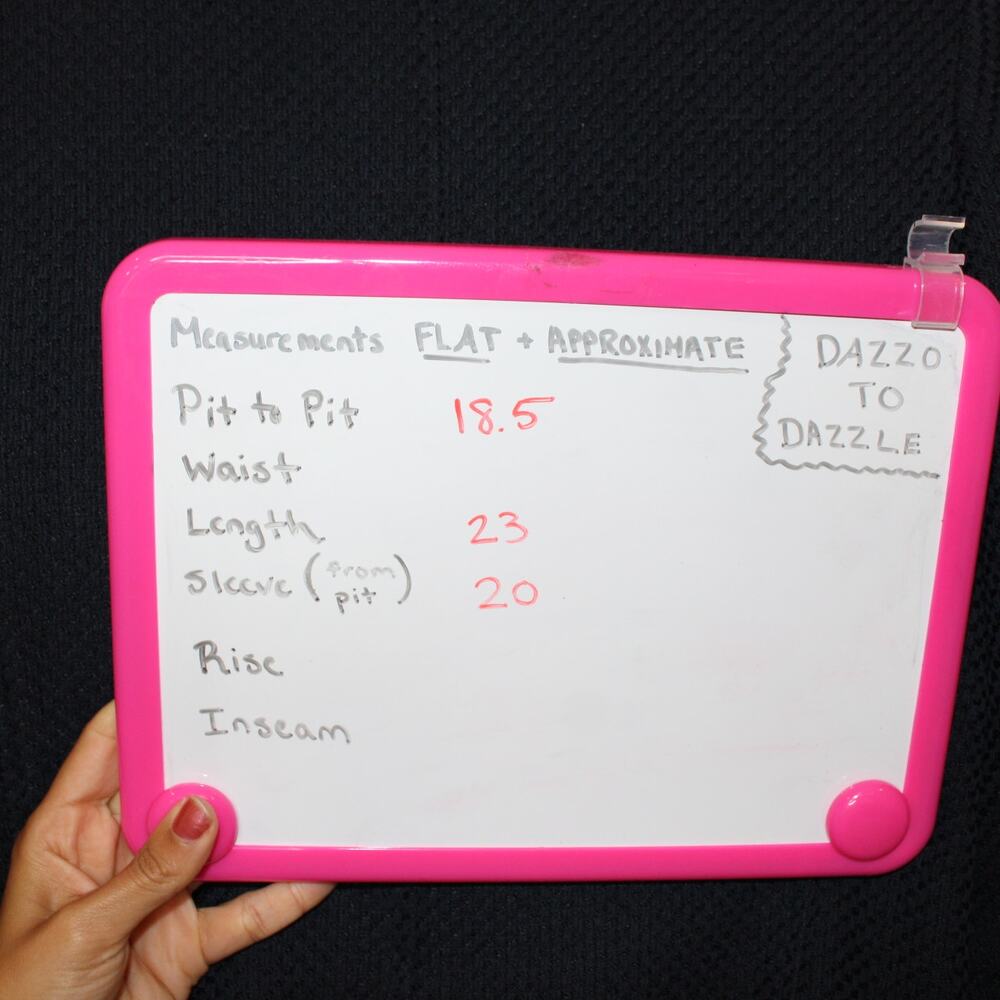 Measurements FLAT + APPROXIMATE
DAZZO
TO
DAZZLE
Pit to Pit 18.5
Waist
Length 23
Sleeve (from pit) 20
Rise
Inseam